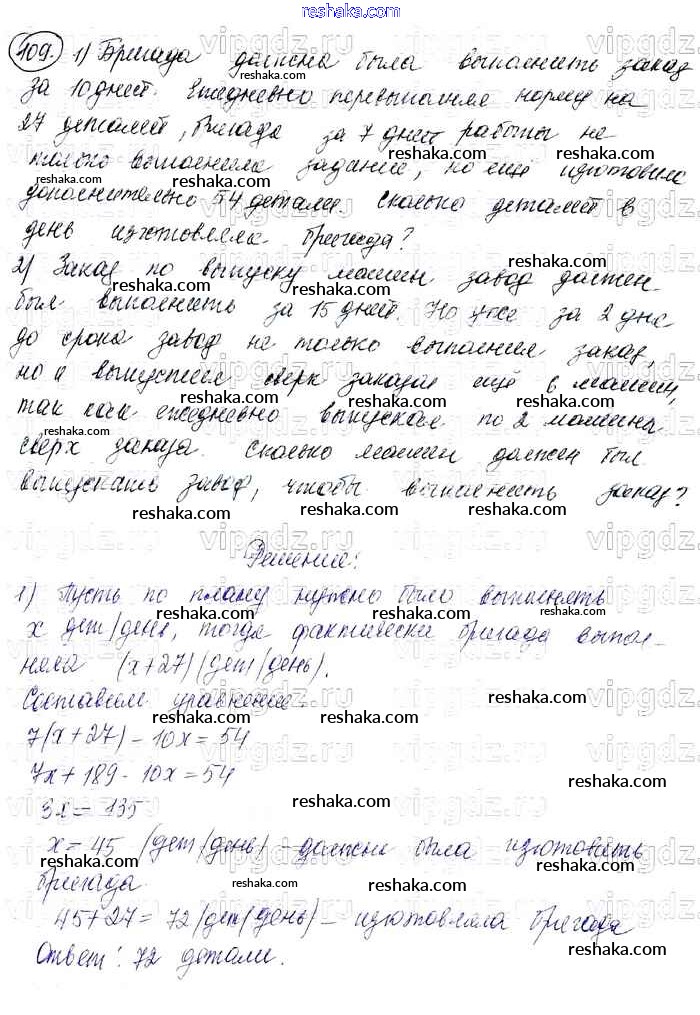 reshaka.com
109. 1) Бригада должна была выполнить заказ
за 10 дней. Ежедневно перевыполняя норму на
27 деталей, бригада за 7 дней работы не
только выполнила задание, но ещё изготовила
дополнительно 54 детали. Сколько деталей в
день изготовляла бригада?
2) Заказ по выпуску машин завод должен
был выполнить за 15 дней. Но уже за 2 дня
до срока завод не только выполнил заказ,
но и выпустил сверх заказа ещё 6 машин,
так как ежедневно выпускал по 2 машины
сверх заказа. Сколько машин должен был
выпускать завод, чтобы выполнить заказ?
Решение:
1) Пусть по плану нужно было выполнять
x дет/день, тогда фактически бригада выпол-
няла (x+27) (дет/день).
Составим уравнение:
7(x+27) - 10x = 54
7x + 189 - 10x = 54
3x = 135
x = 45 (дет/день) - должна была изготовить
бригада
45 + 27 = 72 (дет/день) - изготовляла бригада
Ответ: 72 детали.